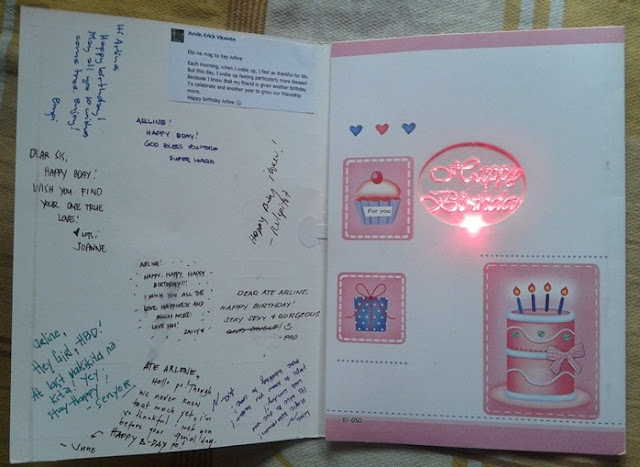 Hi Arline
Happy birthday!
May all your wishes
come true. Enjoy!
Bagi
Arvin Erick Vicente
Eto na msg ko kay Arline
Each morning, when I wake up, I feel so thankful for life.
But this day, I woke up feeling particularly more blessed
Because I know that my friend is given another birthday
To celebrate and another year to grow our friendship
more.
Happy birthday Arline
ARLINE!
HAPPY BDAY!
GOD BLESS YOU MORE
SUPER
DEAR SIS,
HAPPY BDAY!
WISH YOU FIND
YOUR ONE TRUE
LOVE!
JOANNE
HAPPY BDAY
ARLINE!
HAPPY, HAPPY, HAPPY
BIRTHDAY!!!
I WISH YOU ALL THE
LOVE, HAPPINESS AND
MUCH MORE!
LOVE YAH!
DEAR ATE ARLINE,
HAPPY BIRTHDAY!
STAY SEXY & GORGEOUS
Arline,
Hey Girl, HBD!
At last nakikita na
kita! Yey!
Stay happy!
- Senyora
ATE ARLENE,
Hello po! Though
we never knew
that much yet, i'm
so thankful I met you
before your special day.
HAPPY B-DAY po
- June
For you
Happy
Birthday
EC-050